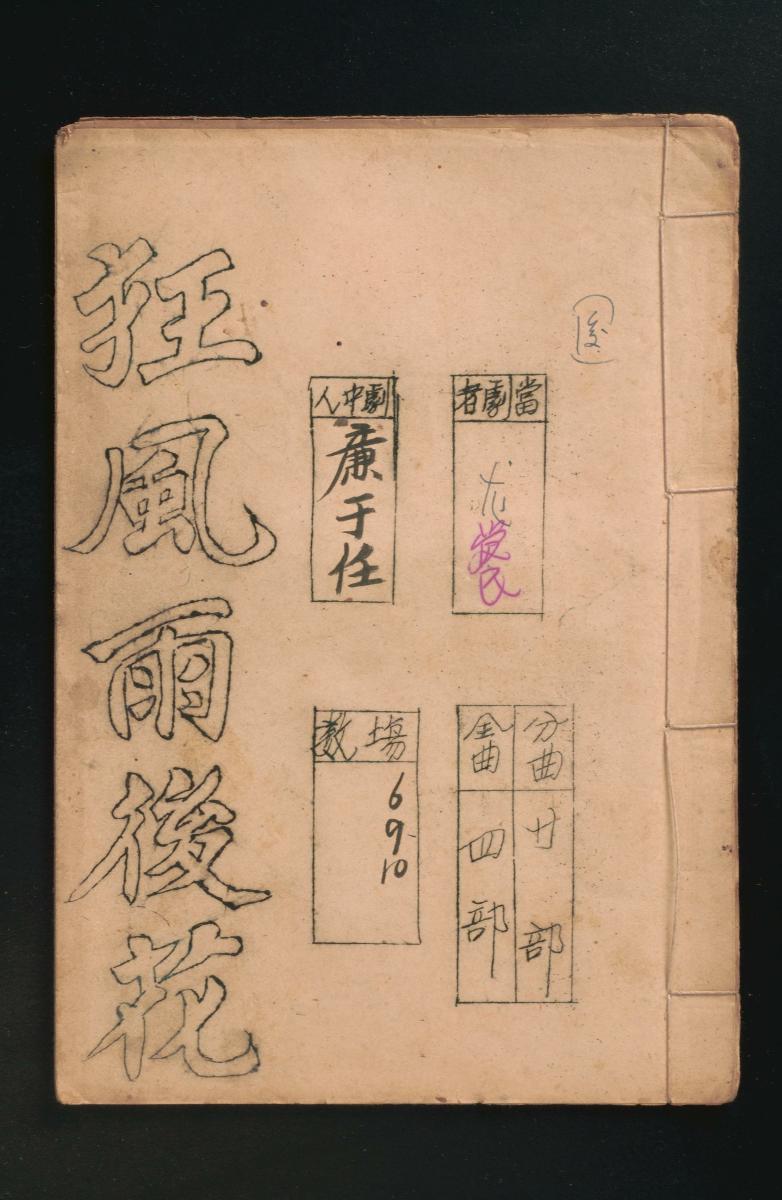 當劇者
尤
分曲
廿部
全曲
四部
劇中人
廉于任
場數
6
9
10
狂風雨後花